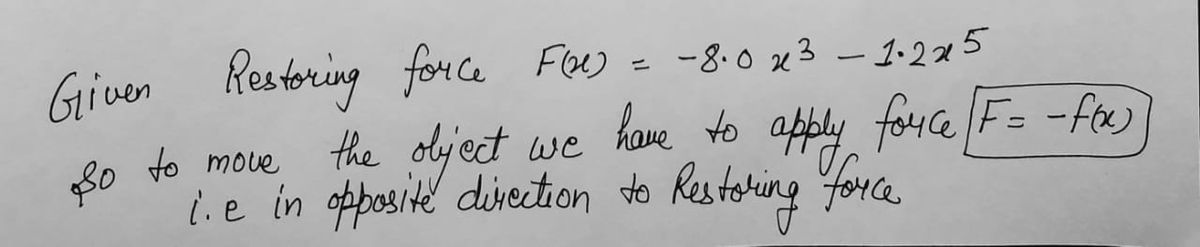 Given Restoring force F(x) = -8.0 x³ - 1.2x⁵
So to move the object we have to apply force F = -f(x)
i.e in opposite direction to Restoring force